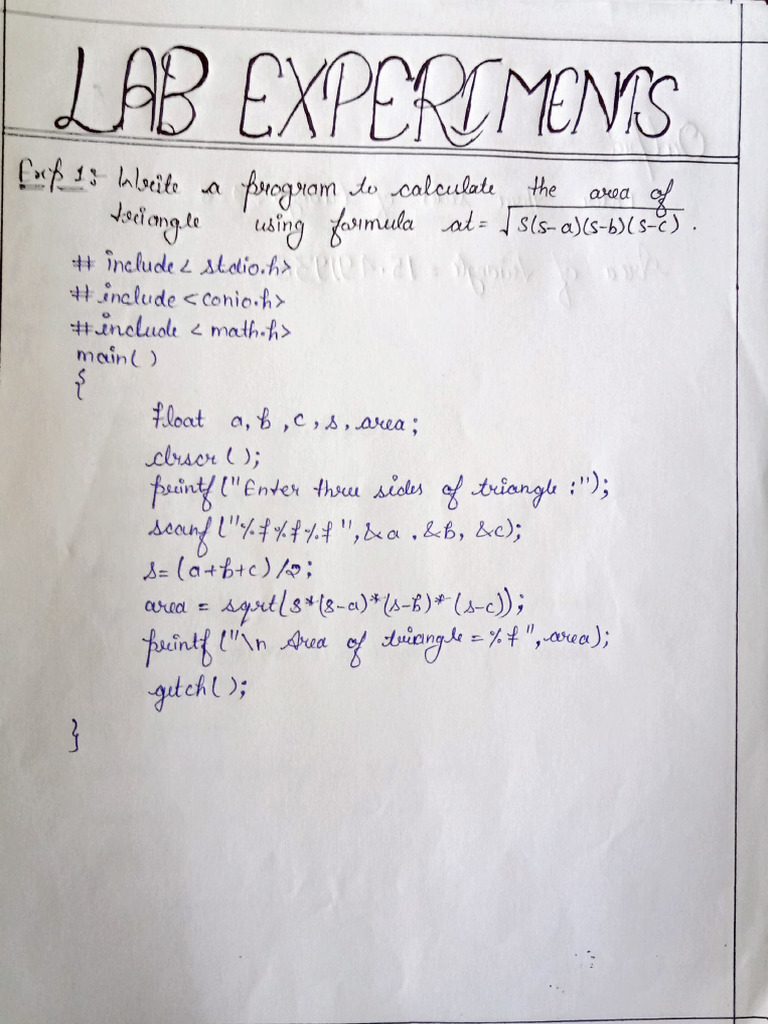 LAB EXPERIMENTS
Exp 1:- Write a program to calculate the area of
triangle using formula at = √s(s-a)(s-b)(s-c) .
# include < stdio.h>
# include <conio.h>
# include < math.h>
main( )
{
float a, b , c , s , area ;
clrscr ( );
printf ("Enter three sides of triangle :");
scanf ("%f%f%f ", &a , &b, &c);
s= (a+b+c) /2;
area = sqrt(s*(s-a)*(s-b)*(s-c));
printf ("\n Area of triangle = %f ", area);
getch( );
}